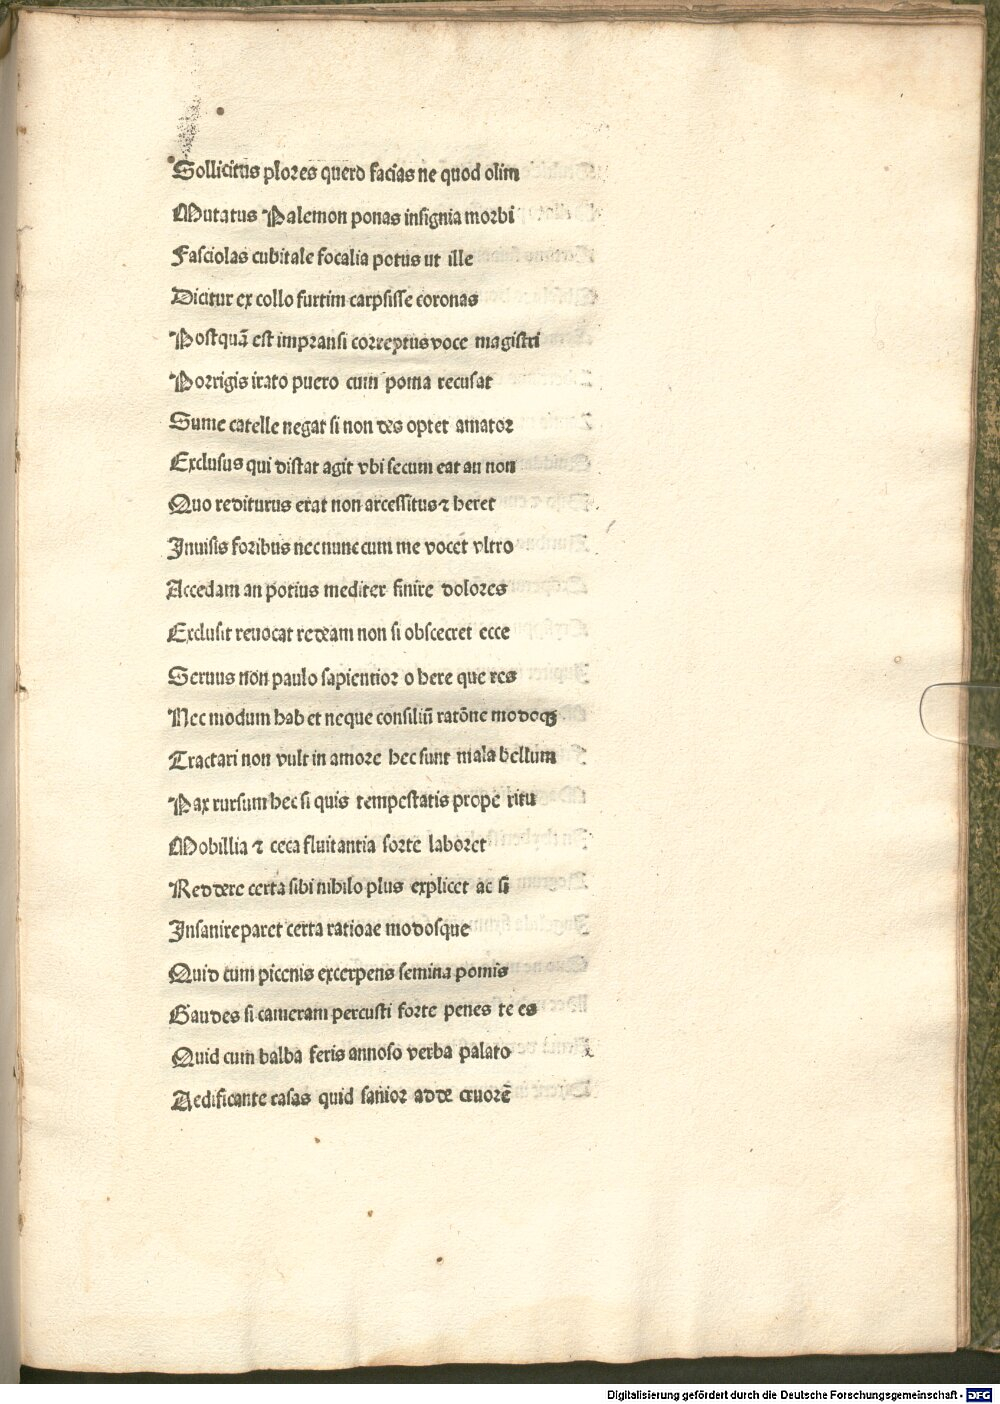 Sollicitus plores quero facias ne quod olim
Mutatus Palemon ponas insignia morbi
Fasciolas cubitale focalia potus ut ille
Dicitur ex collo furtim carpsisse coronas
Postquā est impransi correptus voce magistri
Porrigis irato puero cum poma recusat
Sume catelle negat si non des optet amator
Exclusus qui distat agit vbi secum eat an non
Quo rediturus erat non arcessitus ⁊ heret
Inuisis foribus nec nunc cum me vocet vltro
Accedam an potius mediter finire dolores
Exclusit reuocat redeam non si obsecret ecce
Seruus non paulo sapientior o here que res
Nec modum hab et neque consiliū ratōne modoqꝫ
Tractari non vult in amore hec sunt mala bellum
Pax rursum hec si quis tempestatis prope ritu
Mobillia ⁊ ceca fluitantia sorte laboret
Reddere certa sibi nihilo plus explicet ac si
Insanire paret certa ratioae modosque
Quid cum picenis excerpens semina pomis
Gaudes si cameram percusti forte penes te es
Quid cum balba feris annoso verba palato
Aedificante casas quid sanior adde cruorē
Digitalisierung gefördert durch die Deutsche Forschungsgemeinschaft - DFG